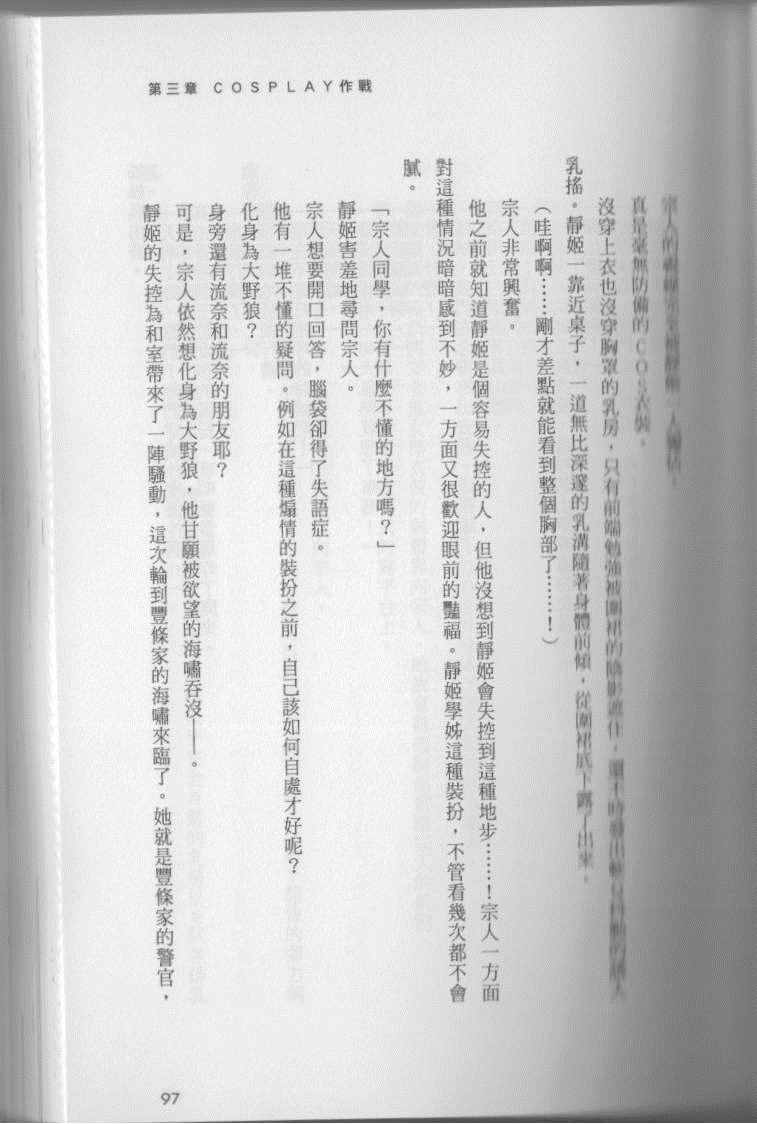 第三章 COSPLAY作戰
真是毫無防備的COS衣裝。
沒穿上衣也沒穿胸罩的乳房，只有前端勉強被圍裙的陰影遮住，
乳搖。靜姬一靠近桌子，一道無比深邃的乳溝隨著身體前傾，從圍裙底下露了出來。
（哇啊啊……剛才差點就能看到整個胸部了……！）
宗人非常興奮。
他之前就知道靜姬是個容易失控的人，但他沒想到靜姬會失控到這種地步……！宗人一方面
對這種情況暗暗感到不妙，一方面又很歡迎眼前的豔福。靜姬學姊這種裝扮，不管看幾次都不會
膩。
「宗人同學，你有什麼不懂的地方嗎？」
靜姬害羞地尋問宗人。
宗人想要開口回答，腦袋卻得了失語症。
他有一堆不懂的疑問。例如在這種煽情的裝扮之前，自己該如何自處才好呢？
化身為大野狼？
身旁還有流奈和流奈的朋友耶？
可是，宗人依然想化身為大野狼，他甘願被欲望的海嘯吞沒——。
靜姬的失控為和室帶來了一陣騷動，這次輪到豐條家的海嘯來臨了。她就是豐條家的警官，
97